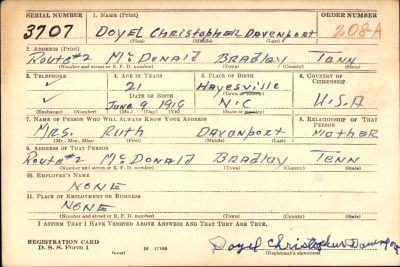 SERIAL NUMBER 1. NAME (Print) ORDER NUMBER
3707 DOYEL Christopher Davenport 208-A
(First) (Middle) (Last)
2. ADDRESS (Print)
Route #2 McDonald Bradley Tenn
(Number and street or R. F. D. number) (Town) (County) (State)
3. TELEPHONE 4. AGE IN YEARS 5. PLACE OF BIRTH 6. COUNTRY OF CITIZENSHIP
21 Hayesville
DATE OF BIRTH (Town or county)
June 9 1919 N.C. U.S.A
(Exchange) (Number) (Mo.) (Day) (Yr.) (State or country)
7. NAME OF PERSON WHO WILL ALWAYS KNOW YOUR ADDRESS 8. RELATIONSHIP OF THAT PERSON
MRS. Ruth Davenport Mother
(Mr., Mrs., Miss) (First) (Middle) (Last)
9. ADDRESS OF THAT PERSON
Route #2 McDonald Bradley Tenn
(Number and street or R. F. D. number) (Town) (County) (State)
10. EMPLOYER'S NAME
NONE
11. PLACE OF EMPLOYMENT OR BUSINESS
NONE
(Number and street or R. F. D. number) (Town) (County) (State)
I AFFIRM THAT I HAVE VERIFIED ABOVE ANSWERS AND THAT THEY ARE TRUE.
REGISTRATION CARD
D. S. S. Form 1 16—17105 Doyel Christopher Davenport
(over) (Registrant's signature)